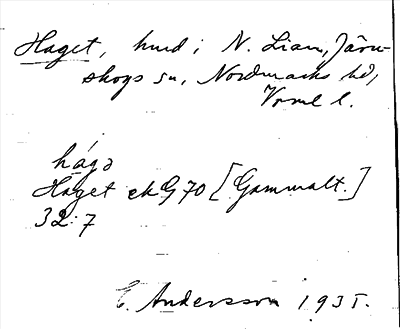 Haget, hmd i N. Lian, Järn-
skogs sn, Nordmarks hd,
Vrml l.
hágə
Haget ek G 70 [Gammalt.]
32:7
E. Andersson 1935.